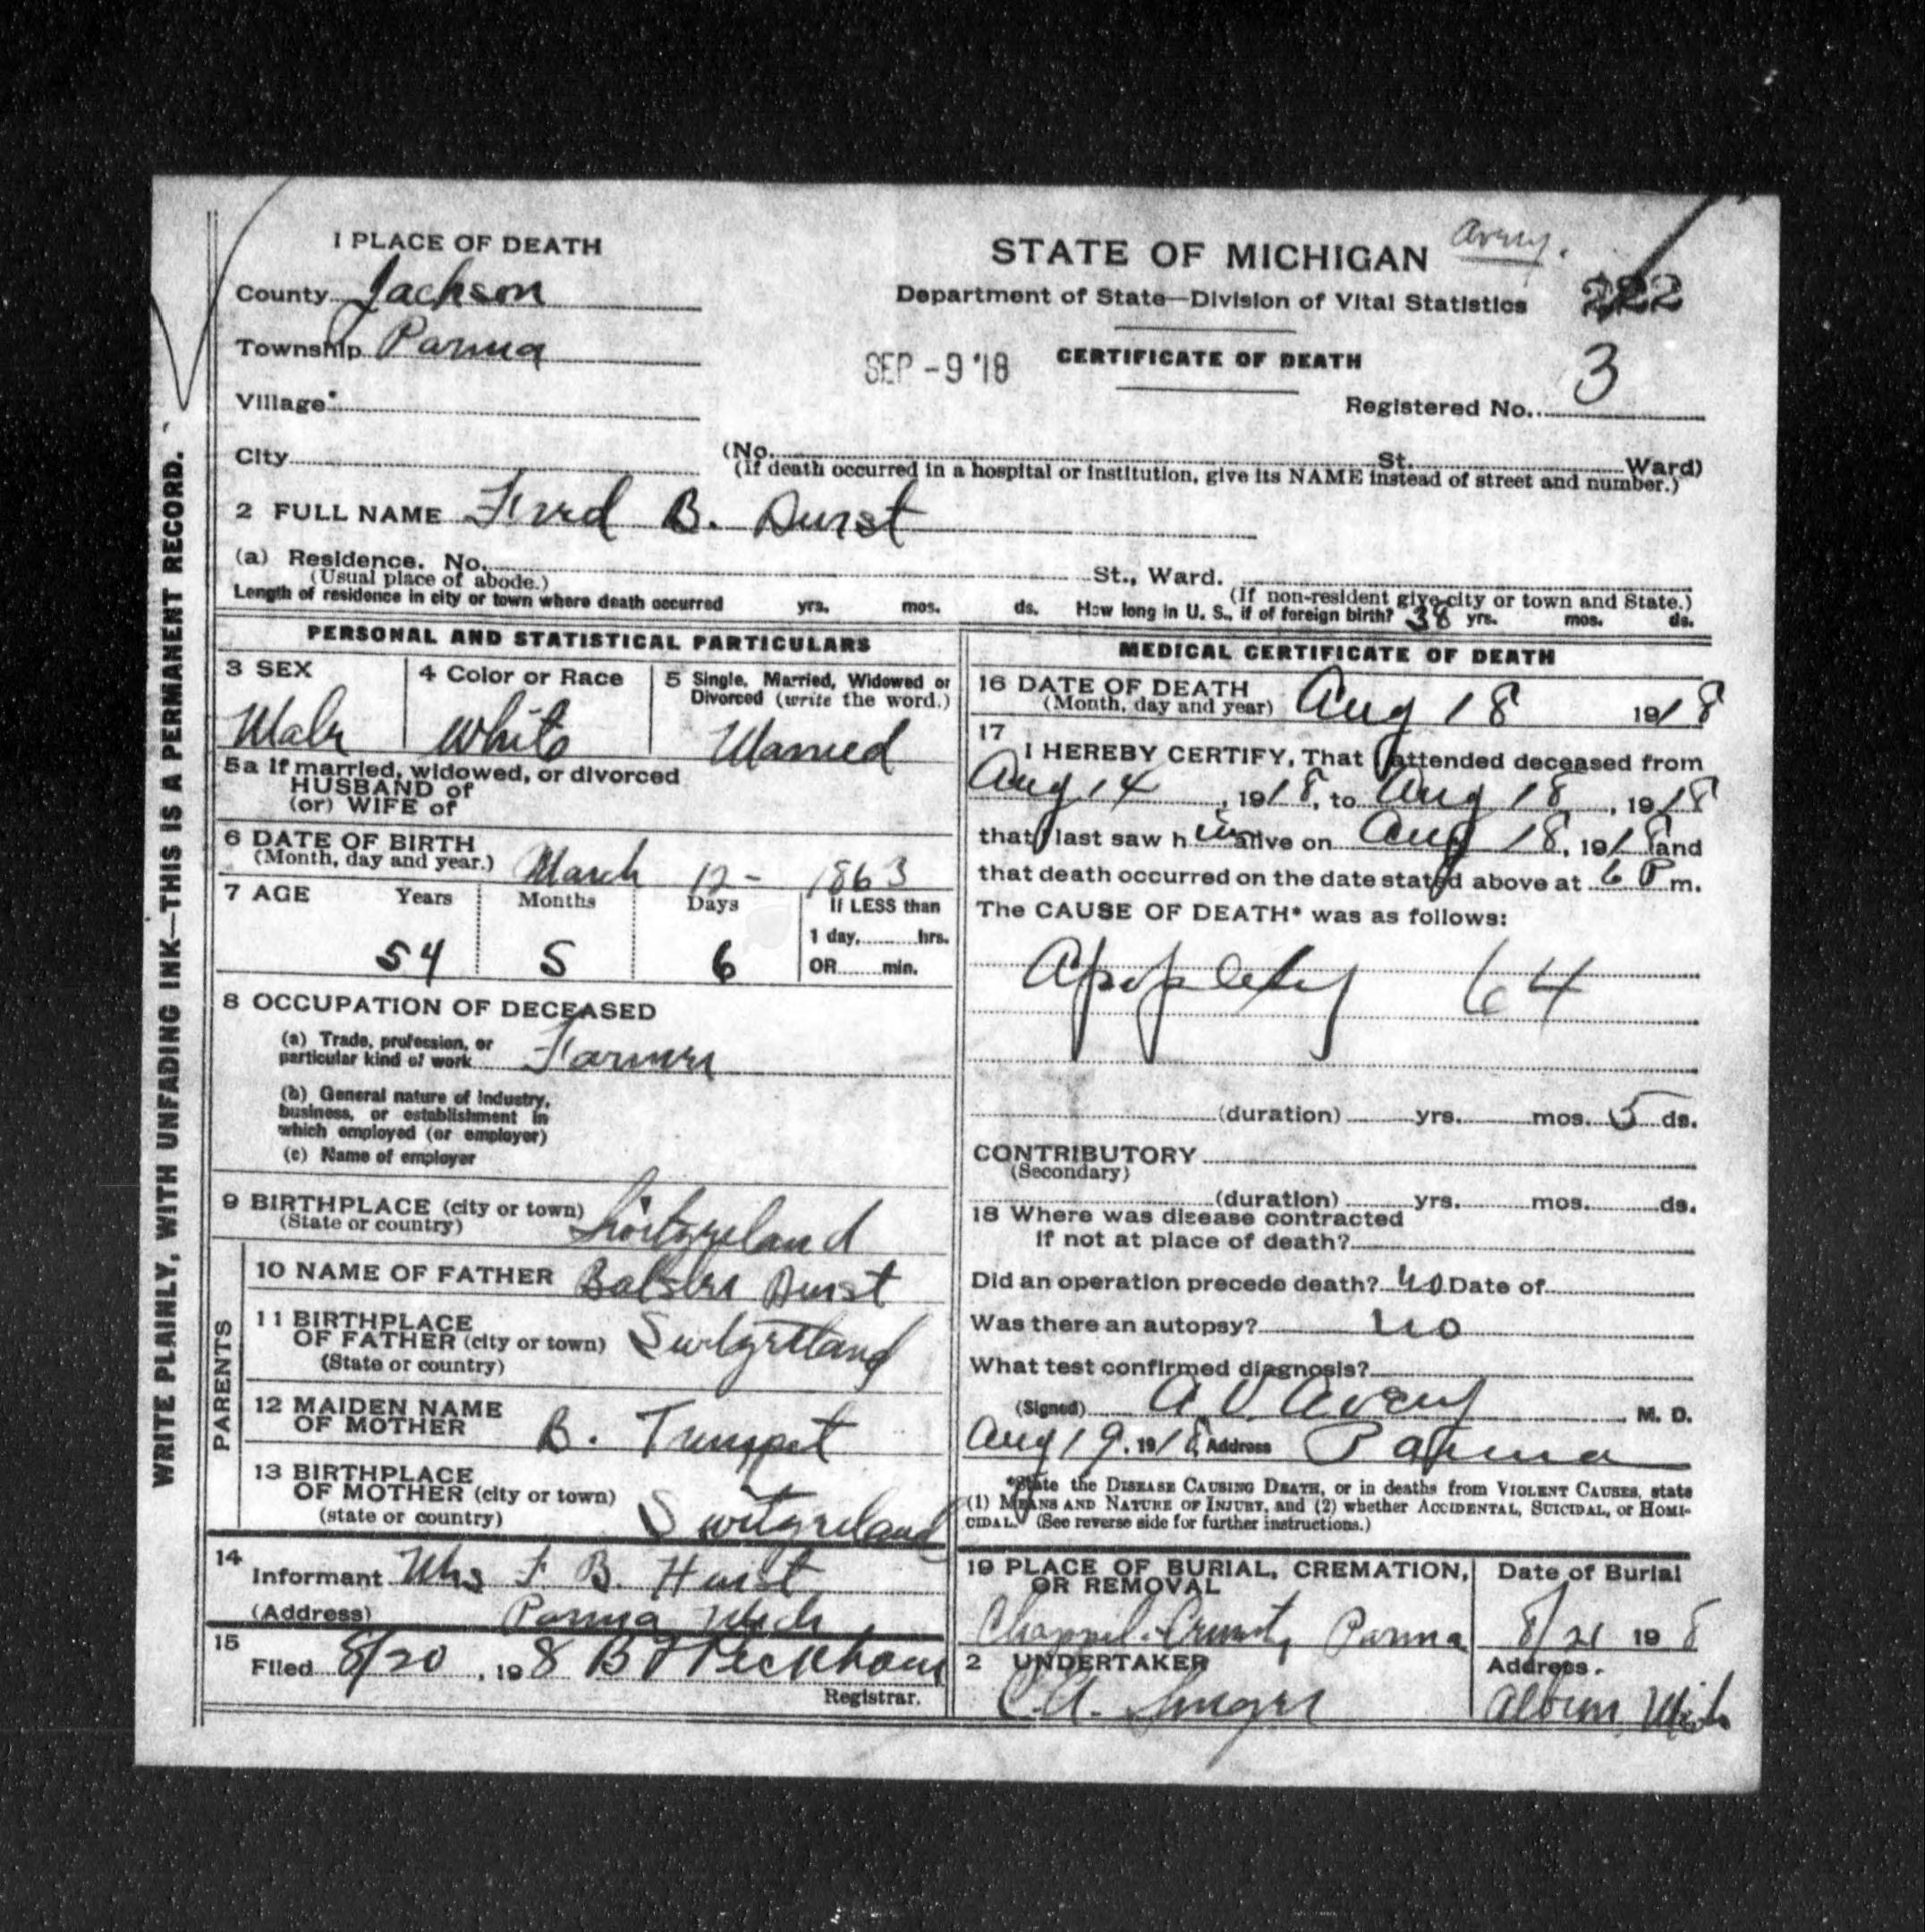 Avery.
1 PLACE OF DEATH
STATE OF MICHIGAN
County Jackson
Department of State—Division of Vital Statistics
222
Township Parma
SEP -9 '18
CERTIFICATE OF DEATH
3
Village
Registered No.
City (No. St. Ward)
(If death occurred in a hospital or institution, give its NAME instead of street and number.)
2 FULL NAME Fred B. Durst
(a) Residence. No. St., Ward.
(Usual place of abode.) (If non-resident give city or town and State.)
Length of residence in city or town where death occurred yrs. mos. ds. How long in U. S., if of foreign birth? 38 yrs. mos. ds.
WRITE PLAINLY, WITH UNFADING INK—THIS IS A PERMANENT RECORD.
PERSONAL AND STATISTICAL PARTICULARS
3 SEX 4 Color or Race 5 Single, Married, Widowed or
Divorced (write the word.)
Male White Married
5a If married, widowed, or divorced
HUSBAND of
(or) WIFE of
6 DATE OF BIRTH
(Month, day and year.) March 12 - 1863
7 AGE Years Months Days If LESS than
1 day, hrs.
54 5 6 OR min.
8 OCCUPATION OF DECEASED
(a) Trade, profession, or
particular kind of work Farmer
(b) General nature of industry,
business, or establishment in
which employed (or employer)
(c) Name of employer
9 BIRTHPLACE (city or town)
(State or country) Switzerland
PARENTS
10 NAME OF FATHER Durst
11 BIRTHPLACE
OF FATHER (city or town) Switzreland
(State or country)
12 MAIDEN NAME
OF MOTHER B.
13 BIRTHPLACE
OF MOTHER (city or town)
(state or country) Switzreland
14
Informant Mrs F. B. Hurst
(Address) Parma Mich
15
Filed 8/20, 198 B F Peckham
Registrar.
MEDICAL CERTIFICATE OF DEATH
16 DATE OF DEATH
(Month, day and year) Aug 18 1918
17
I HEREBY CERTIFY, That I attended deceased from
Aug 14, 1918, to Aug 18, 1918
that I last saw him alive on Aug 18, 1918 and
that death occurred on the date stated above at 6 P m.
The CAUSE OF DEATH* was as follows:
Apoplexy 64
(duration) yrs. mos. 5 ds.
CONTRIBUTORY
(Secondary)
(duration) yrs. mos. ds.
18 Where was disease contracted
If not at place of death?
Did an operation precede death? no Date of
Was there an autopsy? no
What test confirmed diagnosis?
(Signed) A. V. Avery M. D.
Aug 19. 1918, Address Parma
*State the DISEASE CAUSING DEATH, or in deaths from VIOLENT CAUSES, state
(1) MEANS AND NATURE OF INJURY, and (2) whether ACCIDENTAL, SUICIDAL, or HOMI-
CIDAL. (See reverse side for further instructions.)
19 PLACE OF BURIAL, CREMATION,
OR REMOVAL
Date of Burial
Parma 8/21 198
2 UNDERTAKER
Address.
C.A.
Albion, Mich